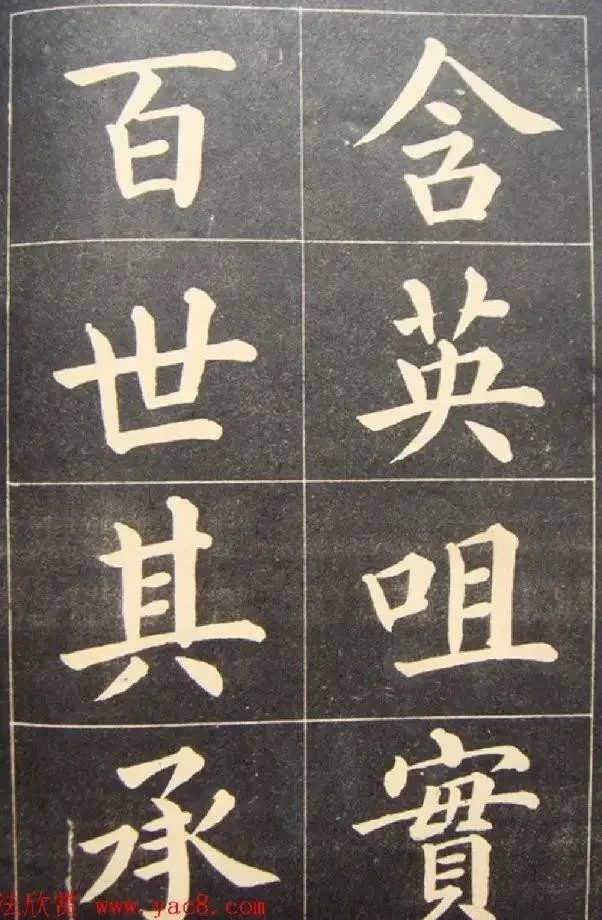 含英咀實
百世其承
法欣赏 www.yac8.com